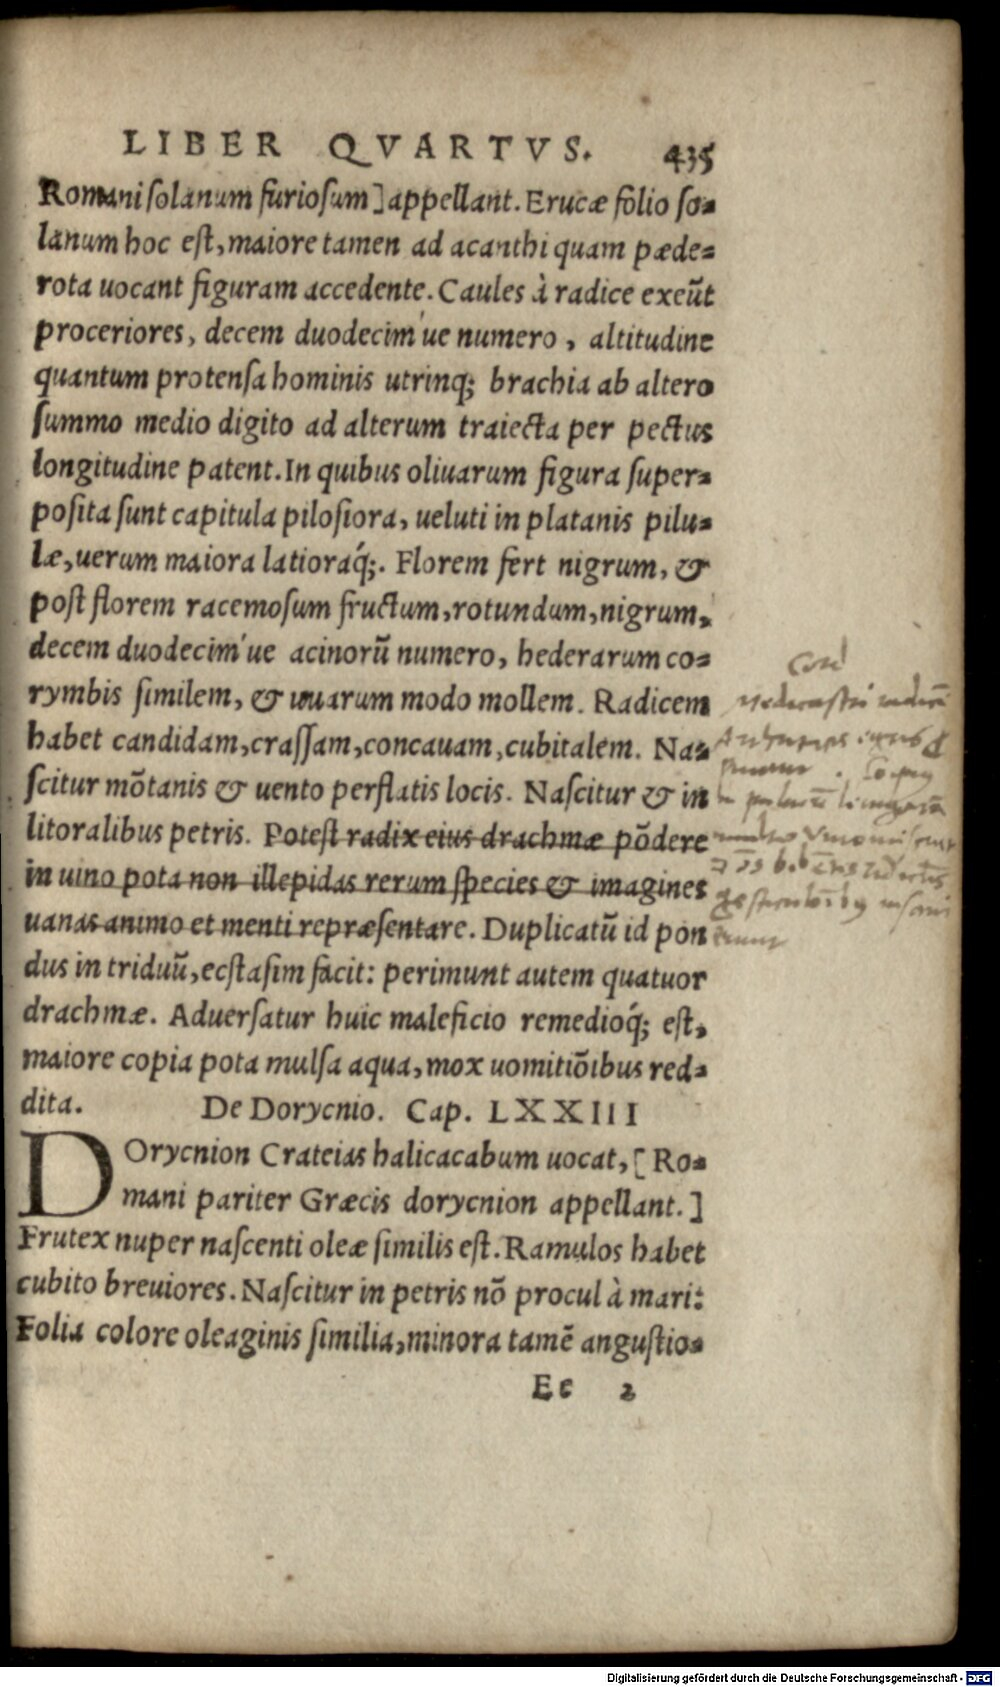 LIBER QVARTVS. 435
Romani solanum furiosum] appellant. Erucæ folio so-
lanum hoc est, maiore tamen ad acanthi quam pæde-
rota uocant figuram accedente. Caules à radice exeūt
proceriores, decem duodecim'ue numero, altitudine
quantum protensa hominis utrinq; brachia ab altero
summo medio digito ad alterum traiecta per pectus
longitudine patent. In quibus oliuarum figura super-
posita sunt capitula pilosiora, ueluti in platanis pilu-
læ, uerum maiora latioraq́;. Florem fert nigrum, &
post florem racemosum fructum, rotundum, nigrum,
decem duodecim'ue acinorū numero, hederarum co-
rymbis similem, & uuarum modo mollem. Radicem
habet candidam, crassam, concauam, cubitalem. Na-
scitur mōtanis & uento perflatis locis. Nascitur & in
litoralibus petris. Potest radix eius drachmæ pōdere
in uino pota non illepidas rerum species & imagines
uanas animo et menti repræsentare. Duplicatū id pon
dus in triduū, ecstasim facit: perimunt autem quatuor
drachmæ. Aduersatur huic maleficio remedioq́; est,
maiore copia pota mulsa aqua, mox uomitiōibus red-
dita. De Dorycnio. Cap. LXXIII
DOrycnion Crateias halicacabum uocat, [Ro-
mani pariter Græcis dorycnion appellant.]
Frutex nuper nascenti oleæ similis est. Ramulos habet
cubito breuiores. Nascitur in petris nō procul à mari:
Folia colore oleaginis similia, minora tamē angustio-
Ee 2
Digitalisierung gefördert durch die Deutsche Forschungsgemeinschaft - DFG